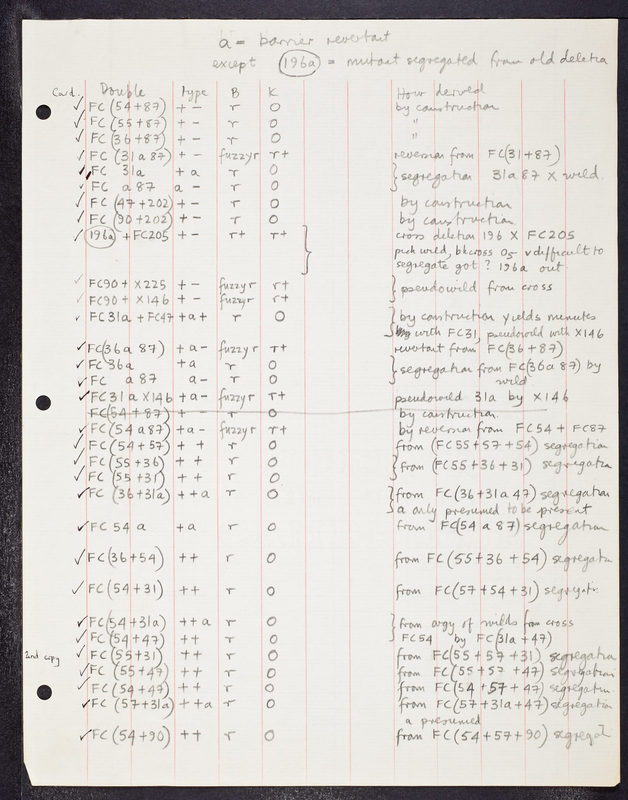 a = barrier revertant
except (196a) = mutant segregated from old deletion
Card. Double type B K How derived
✓ FC (54+87) + - r 0 by construction
✓ FC (55+87) + - r 0 "
✓ FC (36+87) + - r 0 "
✓ FC (31a87) + - fuzzy r r+ reversion from FC(31+87)
✓ FC 31a + a r 0 } segregation 31a87 X wild.
✓ FC a87 a - r 0
✓ FC (47+202) + - r 0 by construction
✓ FC (90+202) + - r 0 by construction
✓ (196a) + FC205 + - r+ r+ } cross deletion 196 X FC205
pick wild, bkcross 05 v difficult to
segregate got? 196a out
✓ FC90 + X225 + - fuzzy r r+ } pseudowild from cross
✓ FC90 + X146 + - fuzzy r r+
✓ FC31a + FC47 + a + r 0 } by construction yields minutes
with FC31, pseudowild with X146
✓ FC(36a 87) + a - fuzzy r r+ revertant from FC(36+87)
✓ FC 36a + a r 0 } segregation from FC(36a 87) by
✓ FC a87 a - r 0 wild
✓ FC31a X146 + a - fuzzy r r+ pseudowild 31a by X146
FC(54+87) + - r 0 by construction.
✓ FC(54a87) + a - fuzzy r r+ by reversion from FC54 + FC87
✓ FC(54+57) + + r 0 from (FC55+57+54) segregation
✓ FC (55+36) + + r 0 } from (FC55+36+31) segregation
✓ FC (55+31) + + r 0
✓ FC (36+31a) + + a r 0 } from FC(36+31a 47) segregation
a only presumed to be present
✓ FC 54 a + a r 0 from FC(54 a 87) segregation
✓ FC(36+54) + + r 0 from FC(55+36+54) segregation
✓ FC(54+31) + + r 0 from FC(57+54+31) segregation
✓ FC(54+31a) + + a r 0 } from progy of wilds from cross
✓ FC(54+47) + + r 0 FC54 by FC(31a+47)
2nd copy ✓ FC(55+31) + + r 0 from FC(55+57+31) segregation
✓ FC(55+47) + + r 0 from FC(55+57+47) segregation
✓ FC(54+47) + + r 0 from FC(54+57+47) segregation
✓ FC (57+31a) + + a r 0 from FC(57+31a+47) segregation
a presumed
✓ FC (54+90) + + r 0 from FC(54+57+90) segregat